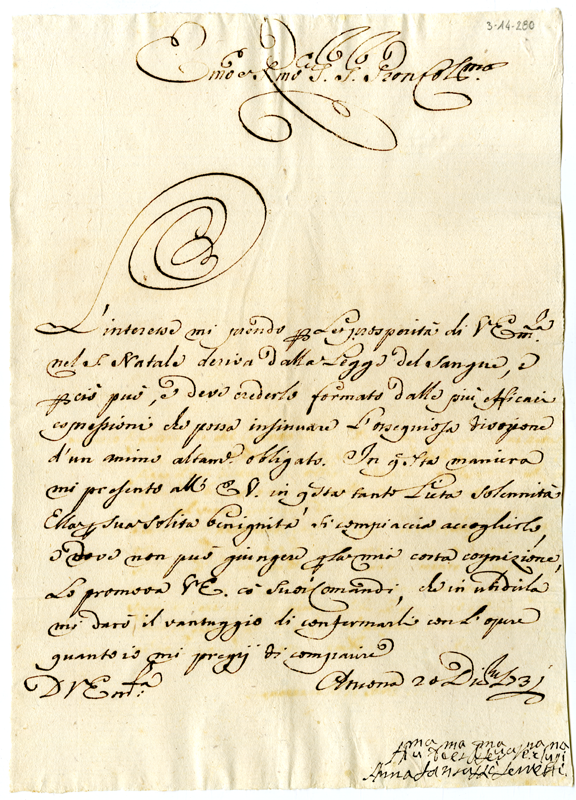 3-14-280
Emo e Rmo S. S. Pron Col.mo
L'interesse mi prendo p le prosperità di V Em.a
nel S. Natale deriva dalla Legge del Sangue, e
pciò può, e deve crederlo formato dalle più efficaci
espressioni che possa insinuare l'ossequiosa disposne
d'un animo altame. obligato. In qsta maniera
mi presento all' E V. in qsta tanto lieta solennità
Ella p sua solita benignità si compiaccia accoglierlo
e dove non può giungere p la mia corta cognizione,
Lo promova V E. cō suoi Comandi, che in ubidirla
mi darò il vantaggio di confermarli con l'opre
quanto io mi pregij di comparire
D V Em.za Ancona 20 Dicbre
ma ma ma na na
Anna